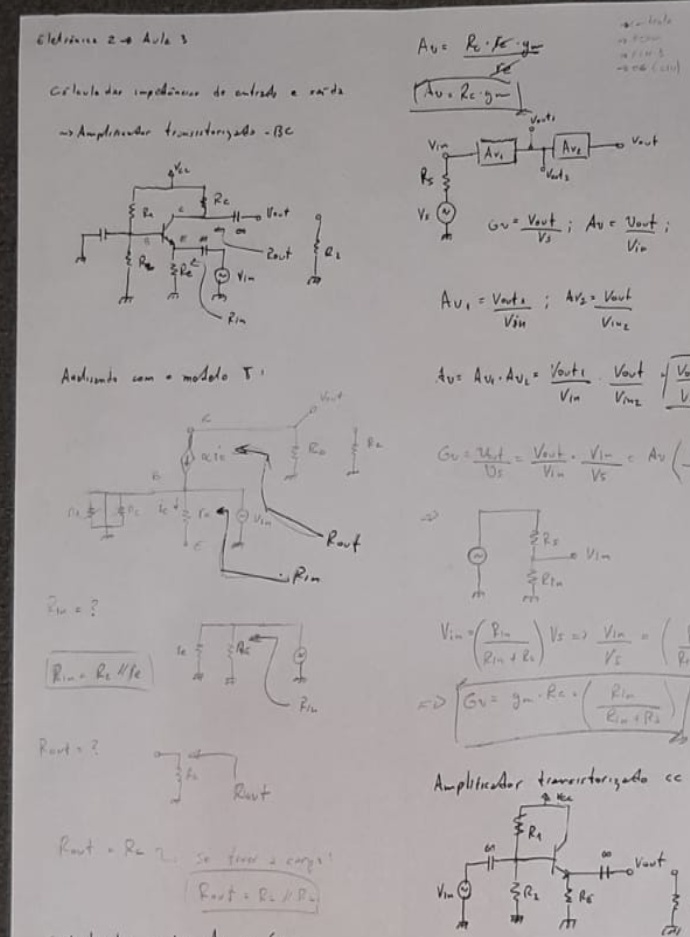 Eletrônica 2 → Aula 3
Cálculo das impedâncias de entrada e saída
→ Amplificador transistorizado - BC
Vcc
R1
Rc
C
Vout
B
E
∞
∞
Rout
Re
Vin
Rin
Analisando com o modelo T:
Vout
αie
B
ie
re
Vin
E
Rout
Rin
Rin = ?
re
Rin
Rin = Re // re
Rout = ?
Rout
Rout = Rc
se tiver a carga!
Av = Rc · re · gm
re
Av = Rc · gm
Vout1
Vin
Av1
Av2
Vout
Rs
Vs
Gv = Vout / Vs ; Av = Vout / Vin ;
Av1 = Vout1 / Vin ; Av2 = Vout / Vin2
Av = Av1 · Av2 = Vout1 / Vin · Vout / Vin2
Gv = Vout / Vs = Vout / Vin · Vin / Vs = Av (
⇒
Rs
Vin
Rin
Vin = (Rin / Rin + Rs) Vs ⇒ Vin / Vs = (
⇒ Gv = gm · Rc · (Rin / Rin + Rs)
Amplificador transistorizado CC
Vcc
R1
∞
∞
Vout
Vin
R2
RE